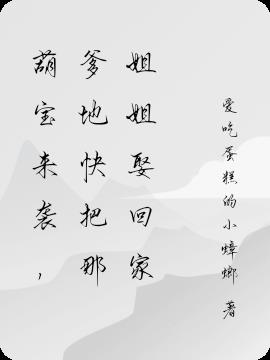 葫宝来袭，
爹地快把那
姐姐娶回家
爱吃蛋糕的小蟑螂 著